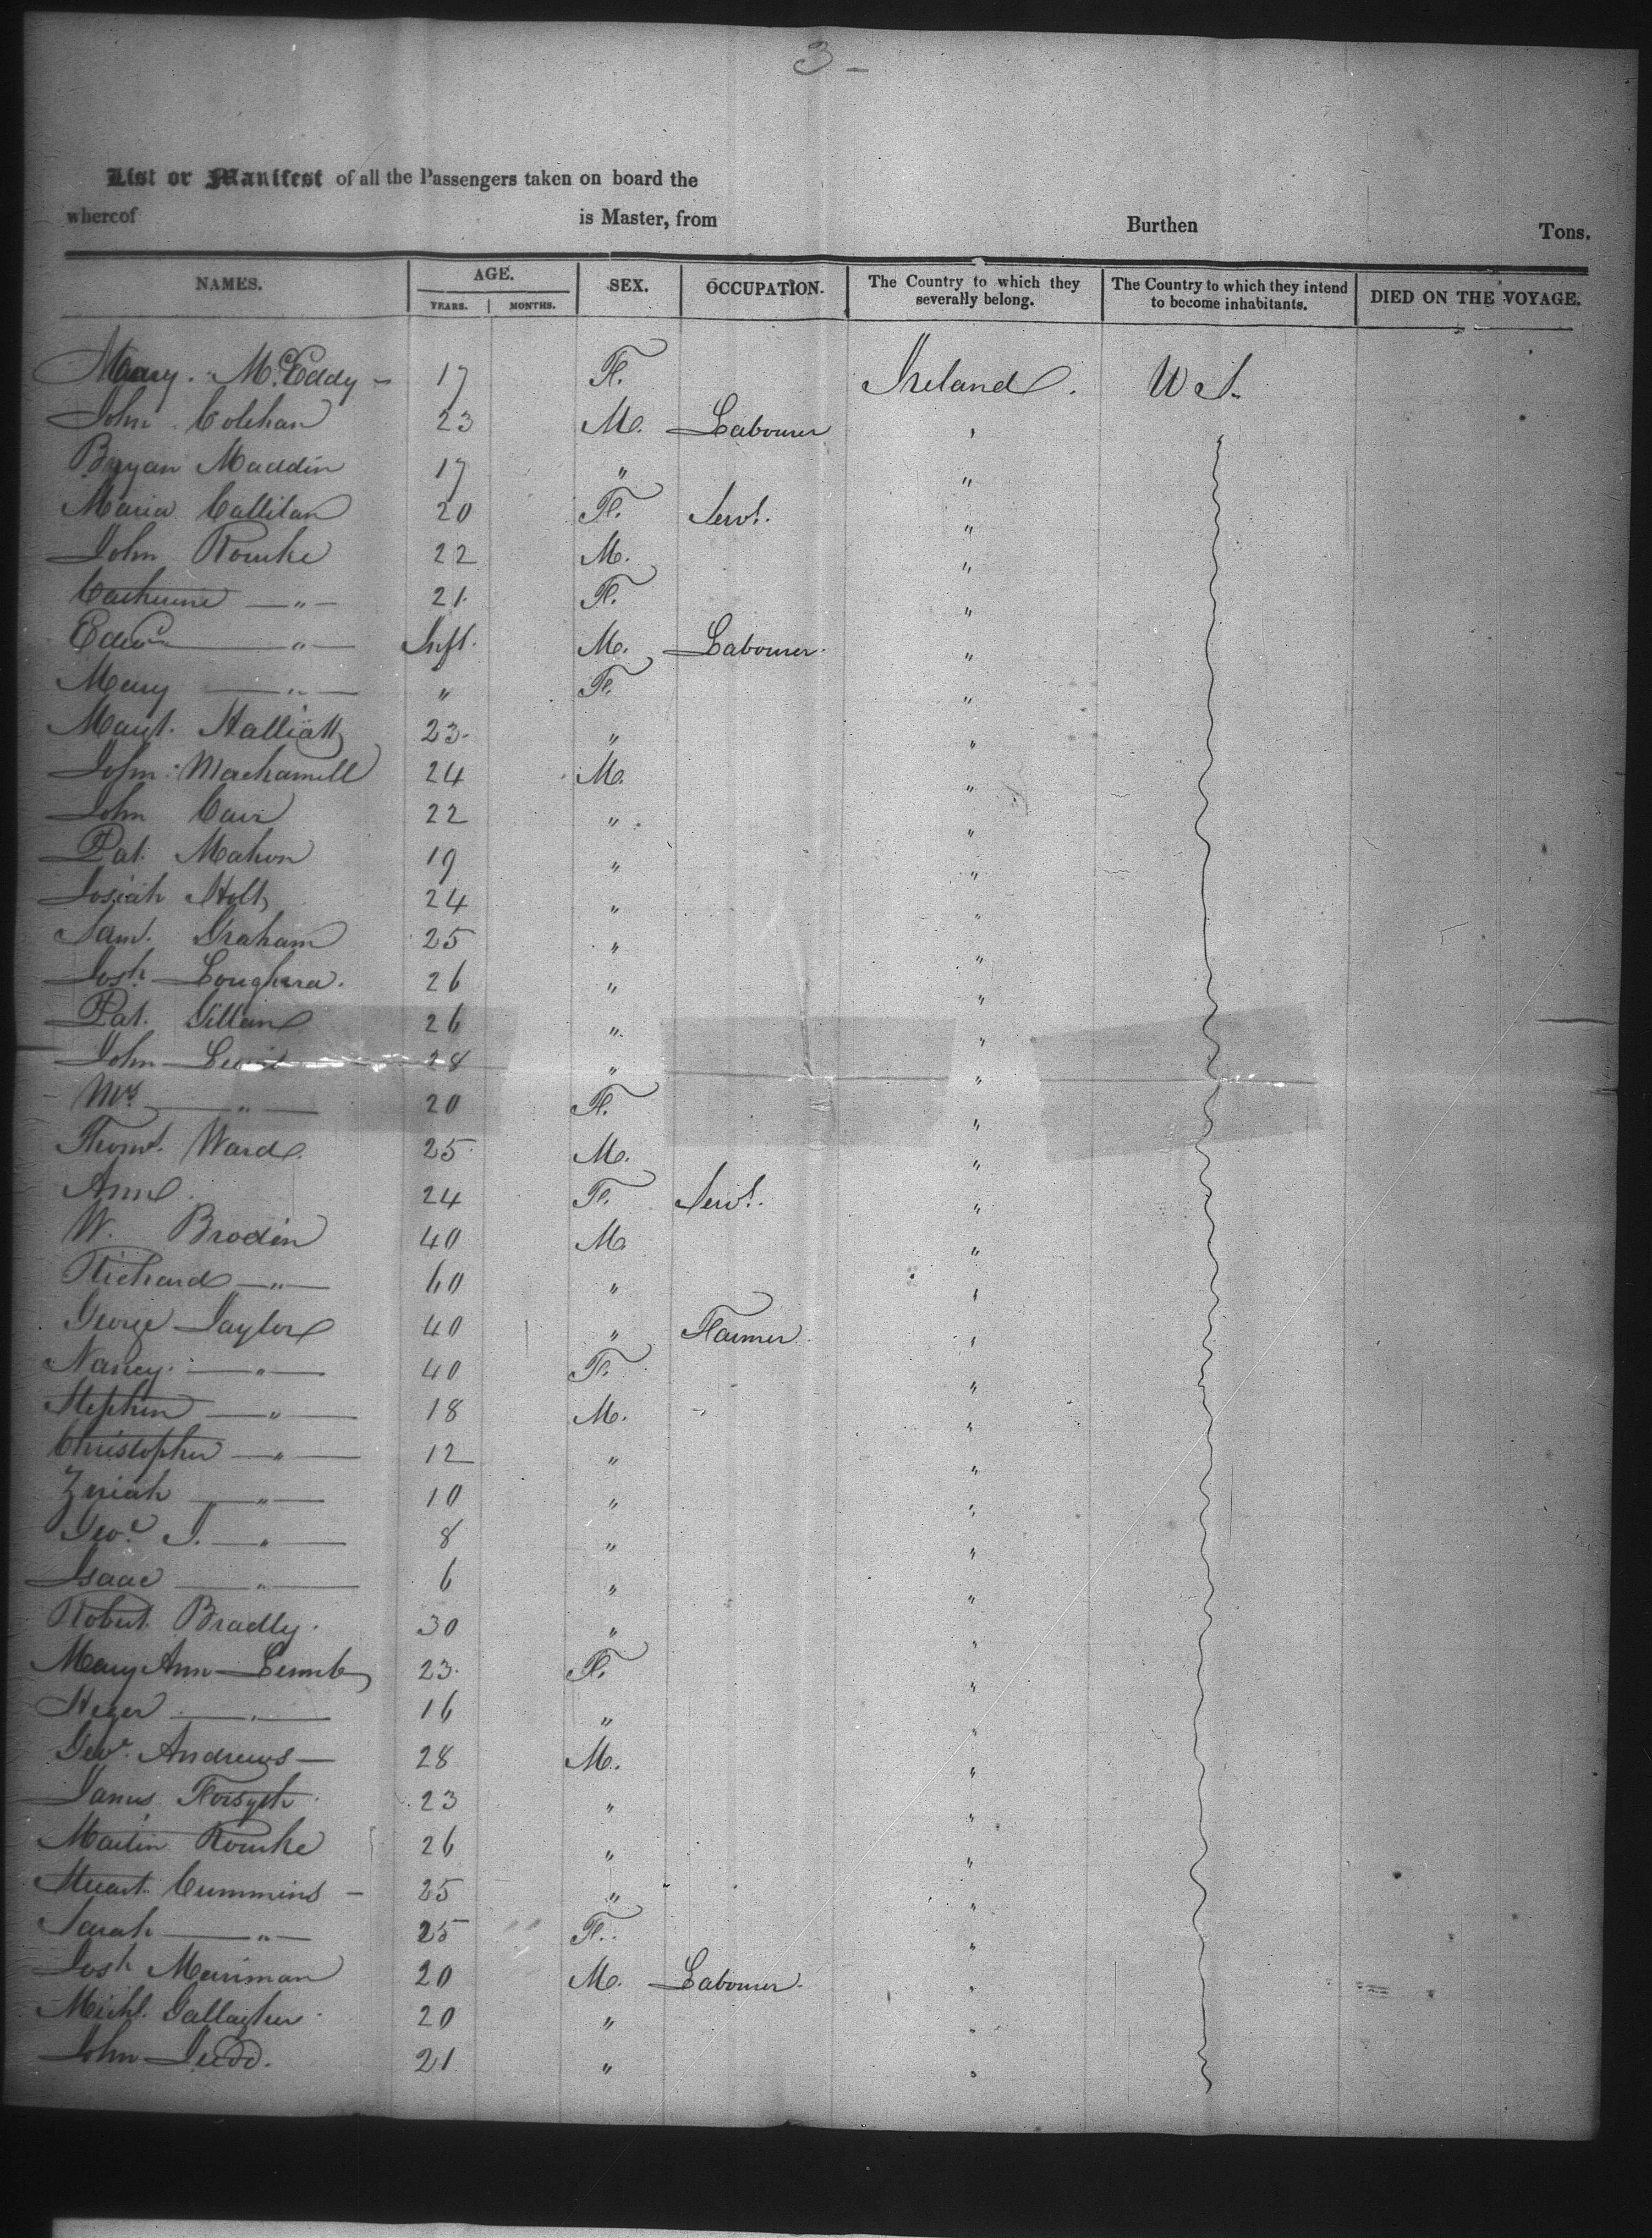 3 -
List or Manifest of all the Passengers taken on board the
whereof is Master, from Burthen Tons.
NAMES. AGE. YEARS. MONTHS. SEX. OCCUPATION. The Country to which they severally belong. The Country to which they intend to become inhabitants. DIED ON THE VOYAGE.
Mary. McEddy - 17 F. Ireland. U S.
John Colehan 23 M. Labourer "
Bryan Maddin 17 " "
Maria Callilan 20 F. Servt. "
John Rourke 22 M. "
Catherine — " — 21. F. "
Edwd — " — Inft. M. Labourer. "
Mary — " — " F. "
Margt. 23. " "
John 24 M. "
John Carr 22 " "
Pat. Mahon 19 " "
Josiah Holt 24 " "
Saml. Graham 25 " "
Josh. Loughera. 26 " "
Pat. 26 " "
John 28 " "
Mrs — " — 20 F. "
Thoms. Ward. 25 M. "
Ann 24 F. Servt. "
W. Brodin 40 M. "
Richard — " — 60 " "
George Taylor 40 " Farmer "
Nancy. — " — 40 F. "
Stephen — " — 18 M. "
Christopher — " — 12 " "
— " — 10 " "
Geo. T. — " — 8 " "
Isaac — " — 6 " "
Robert Bradly. 30 " "
Mary Ann 23. F. "
— " — 16 " "
Geo. Andrews — 28 M. "
James Forsyth 23 " "
Martin Rourke 26 " "
Stuart Cummins - 25 " "
Sarah — " — 25 F. "
Josh Merriman 20 M. Labourer. "
Michl. Gallagher 20 " "
John Judd. 21 " "